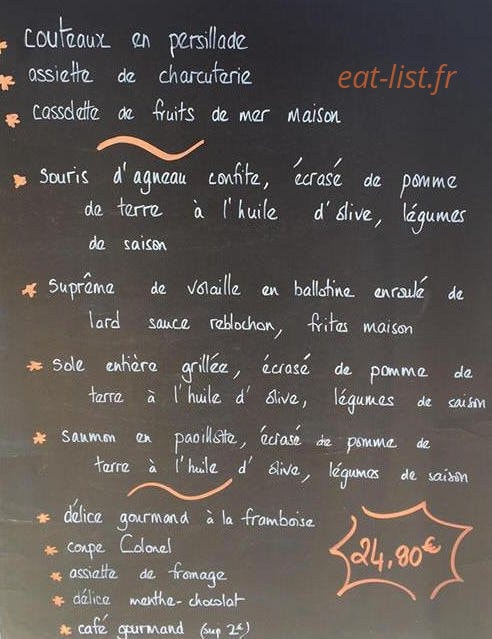 couteaux en persillade
assiette de charcuterie
eat-list.fr
cassolette de fruits de mer maison
souris d'agneau confite, écrasé de pomme
de terre à l'huile d'olive, légumes
de saison
suprême de volaille en ballotine enroulé de
lard sauce reblochon, frites maison
sole entière grillée, écrasé de pomme de
terre à l'huile d'olive, légumes de saison
saumon en papillotte, écrasé de pomme de
terre à l'huile d'olive, légumes de saison
délice gourmand à la framboise
coupe Colonel
24,80€
assiette de fromage
délice menthe-chocolat
café gourmand (sup 2€)